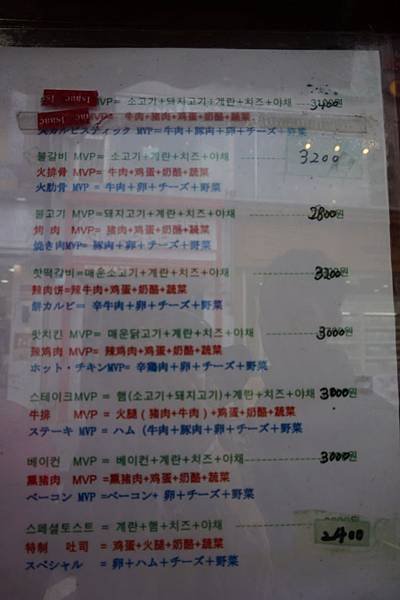 Isaac Isaac
MVP= 소고기+돼지고기+계란+치즈+야채 3400원
MVP= 牛肉+猪肉+鸡蛋+奶酪+蔬菜
火カルビスティック MVP=牛肉+豚肉+卵+チーズ+野菜
불갈비 MVP= 소고기+계란+치즈+야채 3200
火排骨 MVP= 牛肉+鸡蛋+奶酪+蔬菜
火肋骨 MVP= 牛肉+卵+チーズ+野菜
불고기 MVP=돼지고기+계란+치즈+야채 2800원
烤 肉 MVP= 猪肉+鸡蛋+奶酪+蔬菜
焼き肉MVP= 豚肉+卵+チーズ+野菜
핫떡갈비=매운소고기+계란+치즈+야채 3200원
辣肉饼=辣牛肉+鸡蛋+奶酪+蔬菜
餅カルビ= 辛牛肉+卵+チーズ+野菜
핫치킨 MVP= 매운닭고기+계란+치즈+야채 3000원
辣鸡肉 MVP= 辣鸡肉+鸡蛋+奶酪+蔬菜
ホット・チキンMVP= 辛鶏肉+卵+チーズ+野菜
스테이크MVP = 햄(소고기+돼지고기)+계란+치즈+야채 3000원
牛排 MVP = 火腿(猪肉+牛肉)+鸡蛋+奶酪+蔬菜
ステーキ MVP = ハム(牛肉+豚肉+卵+チーズ+野菜
베이컨 MVP = 베이컨+계란+치즈+야채 3000원
熏猪肉 MVP =熏猪肉+鸡蛋+奶酪+蔬菜
ベーコン MVP =ベーコン+卵+チーズ+野菜
스페셜토스트 = 계란+햄+치즈+야채 2400
特制 吐司 = 鸡蛋+火腿+奶酪+蔬菜
スペシャル = 卵+ハム+チーズ+野菜